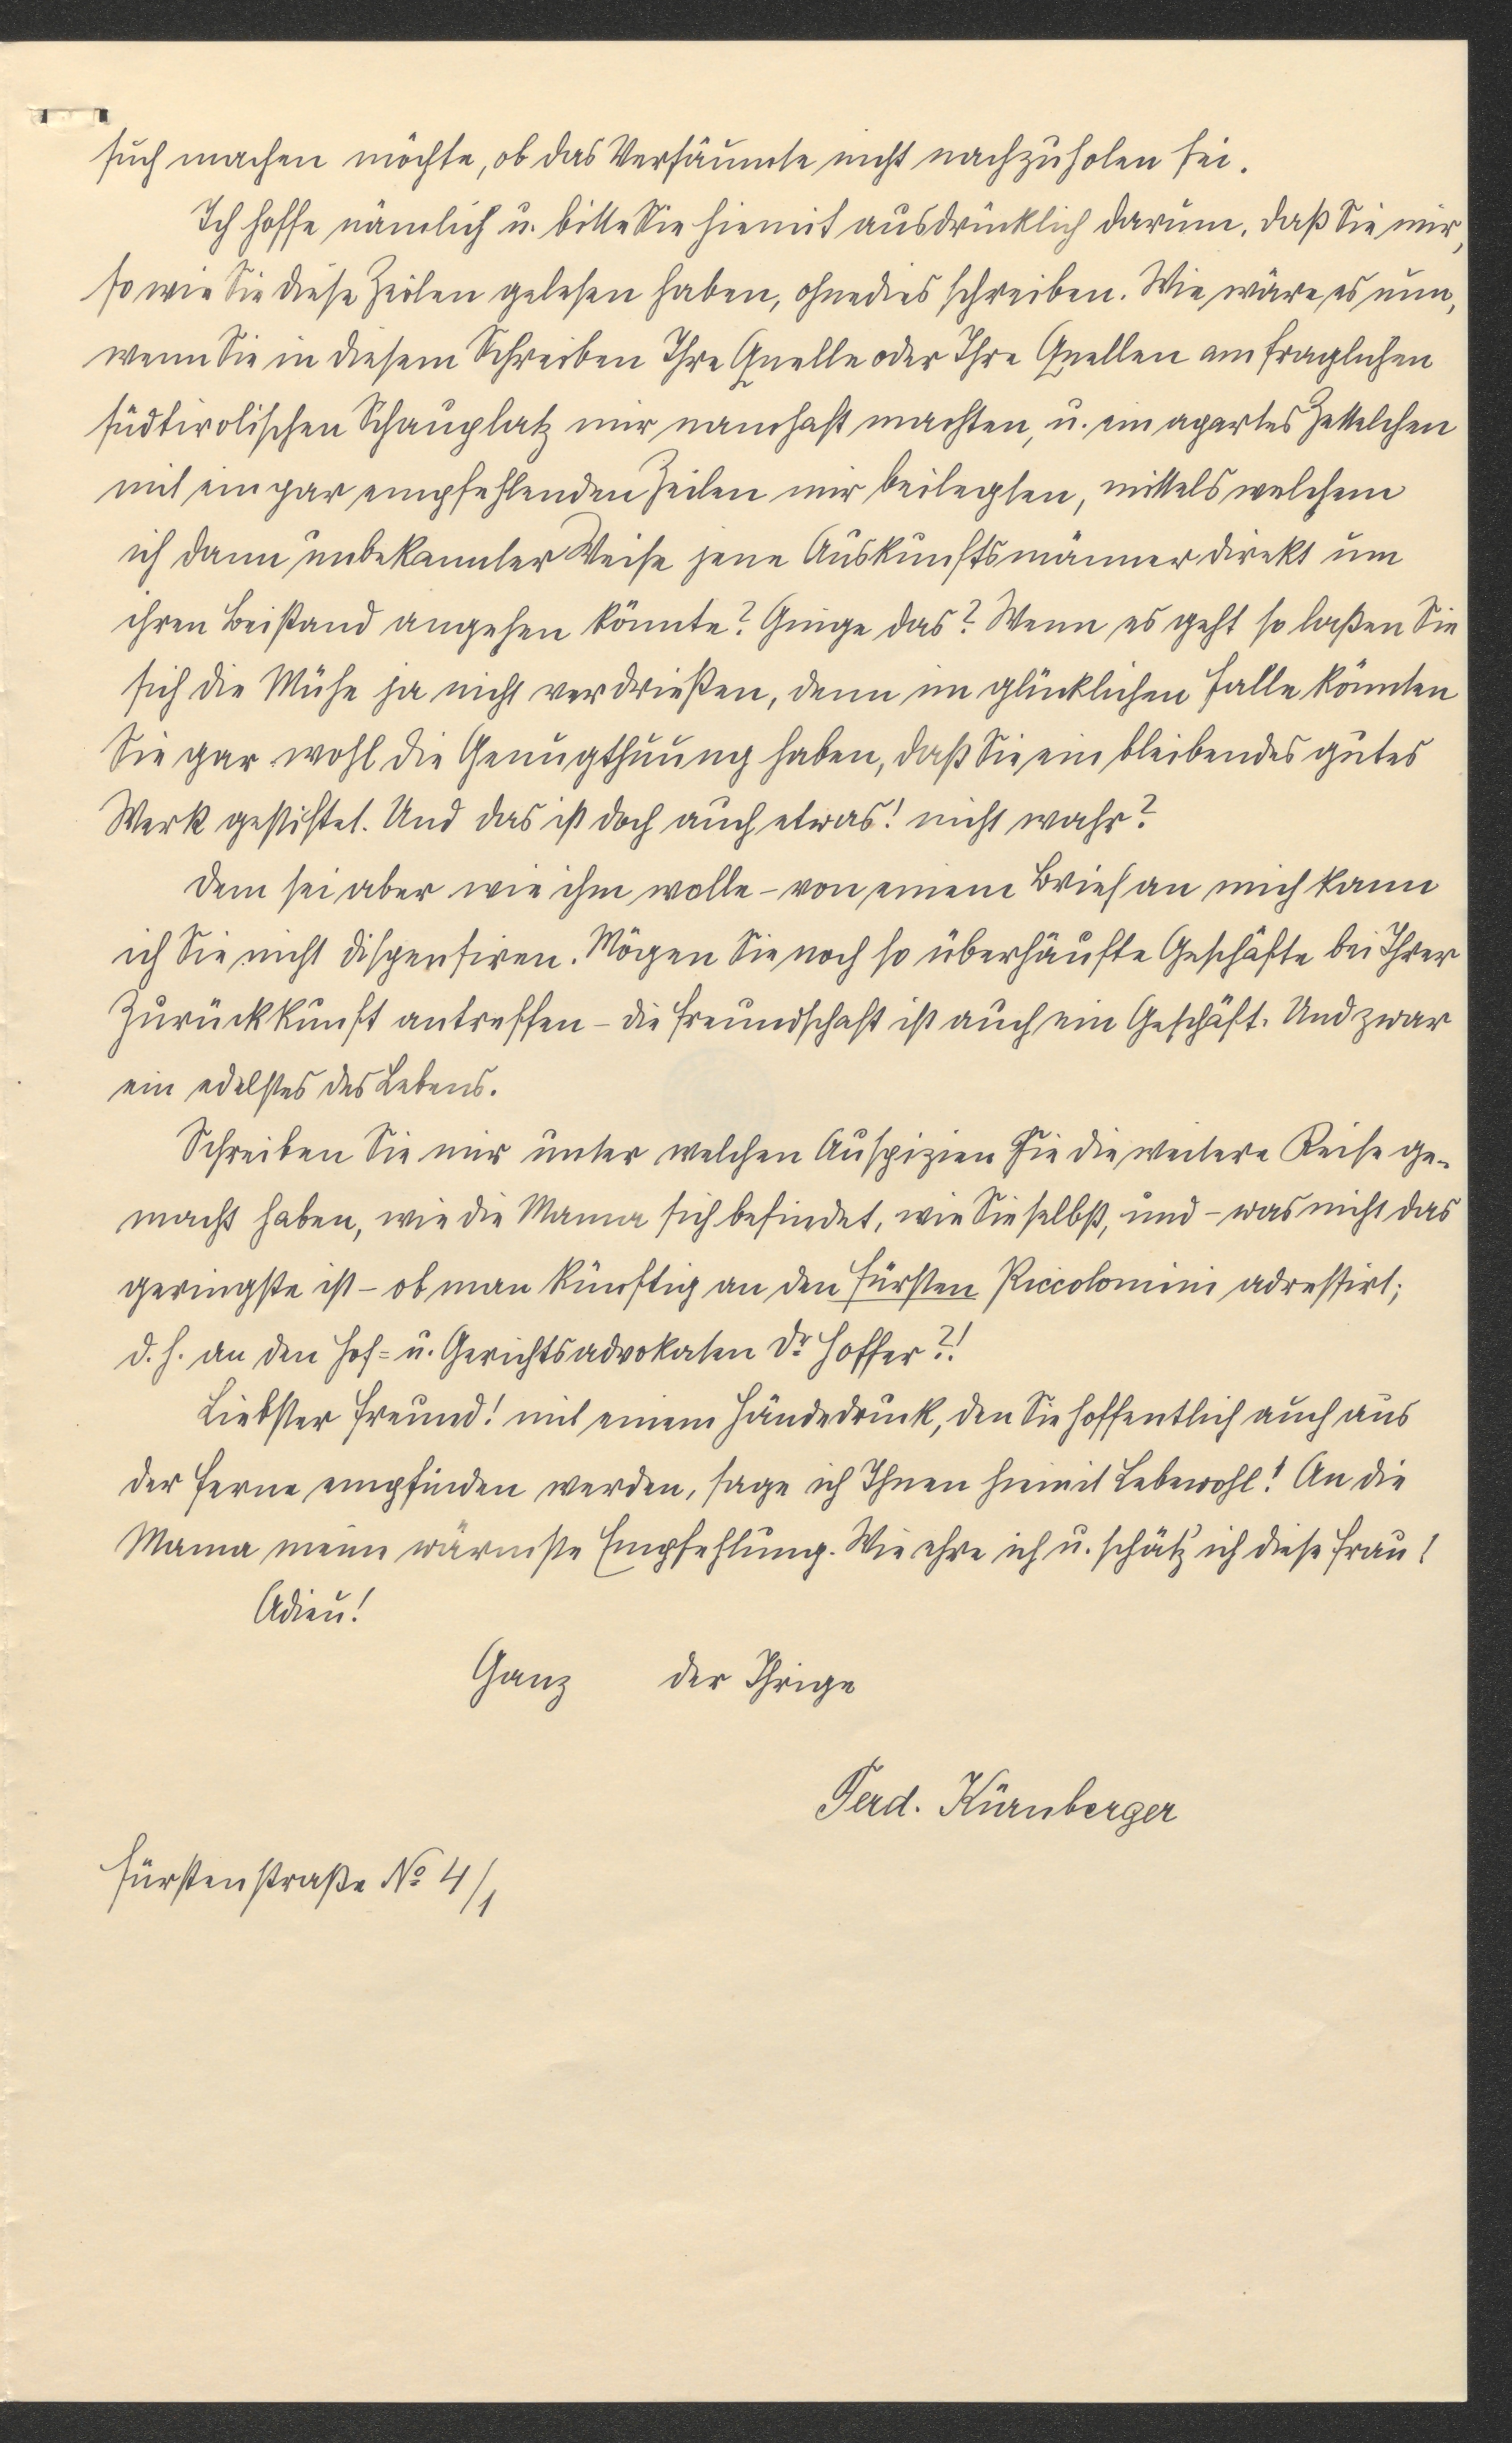 such machen möchte, ob das Versäumte nicht nachzuholen sei.
Ich hoffe nämlich u. bitte Sie hiemit ausdrücklich darum, daß Sie mir,
so wie Sie diese Zeilen gelesen haben, ohnedies schreiben. Wie wäre es nun,
wenn Sie in diesem Schreiben Ihre Quelle oder Ihre Quellen am fraglichen
südtirolischen Schauplatz mir namhaft machten, u. ein apartes Zettelchen
mit ein par empfehlenden Zeilen mir beilegten, mittels welchem
ich dann unbekannter Weise jene Auskunftsmänner direkt um
ihren Beistand angehen könnte? Ginge das? Wenn es geht so laßen Sie
sich die Mühe ja nicht verdrießen, denn im glücklichen Falle könnten
Sie gar wohl die Genugthuung haben, daß Sie ein bleibendes gutes
Werk gestiftet. Und das ist doch auch etwas! nicht wahr?
Dem sei aber wie ihm wolle – von einem Brief an mich kann
ich Sie nicht dispensiren. Mögen Sie noch so überhäufte Geschäfte bei Ihrer
Zurückkunft antreffen – die Freundschaft ist auch ein Geschäft. Und zwar
ein edelstes des Lebens.
Schreiben Sie mir unter welchen Auspizien Sie die weitere Reise ge-
macht haben, wie die Mama sich befindet, wie Sie selbst, und – was nicht das
geringste ist – ob man künftig an den Fürsten Piccolomini adressirt;
d. h. an den Hof- u. Gerichtsadvokaten Dr. Hoffer?!
Liebster Freund! mit einem Händedruck, den Sie hoffentlich auch aus
der Ferne empfinden werden, sage ich Ihnen hiemit Lebewohl! An die
Mama meine wärmste Empfehlung. Wie ehre ich u. schätz' ich diese Frau!
Adieu!
Ganz der Ihrige
Ferd. Kürnberger
Fürstenstraße No 4/1